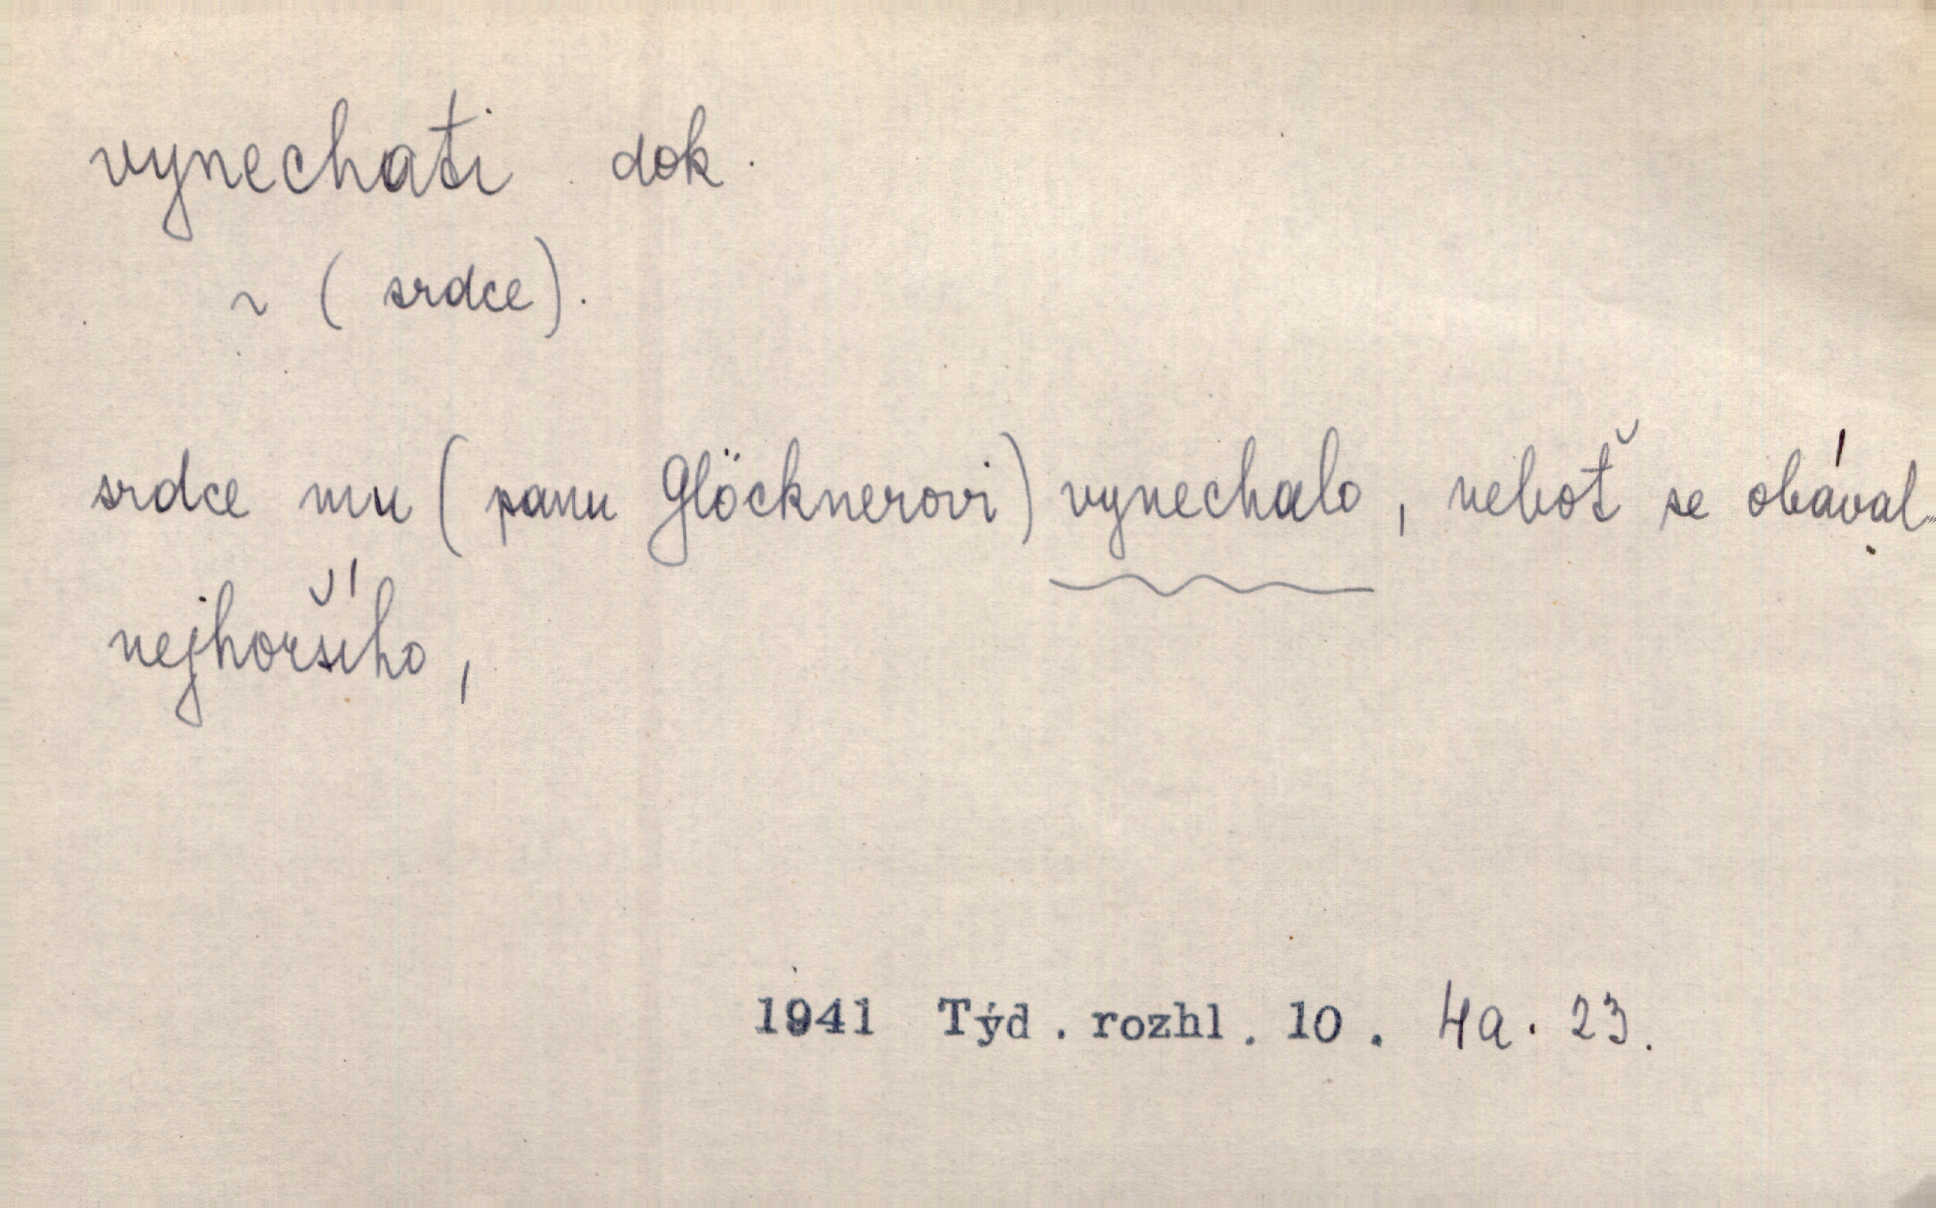 vynechati dok.
~ (srdce).
srdce mu (panu Glöcknerovi) vynechalo, neboť se obával
nejhoršího,
1941 Týd. rozhl. 10. 4a. 23.